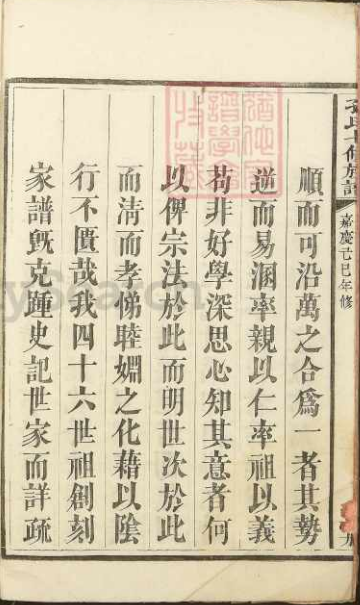 順而可沿萬之合爲一者其勢
逆而易溷率親以仁率祖以義
苟非好學深思心知其意者何
以俾宗法於此而明世次於此
而清而孝悌睦婣之化藉以陰
行不匱哉我四十六世祖創刻
家譜旣克踵史記世家而詳疏
嘉慶己巳年修